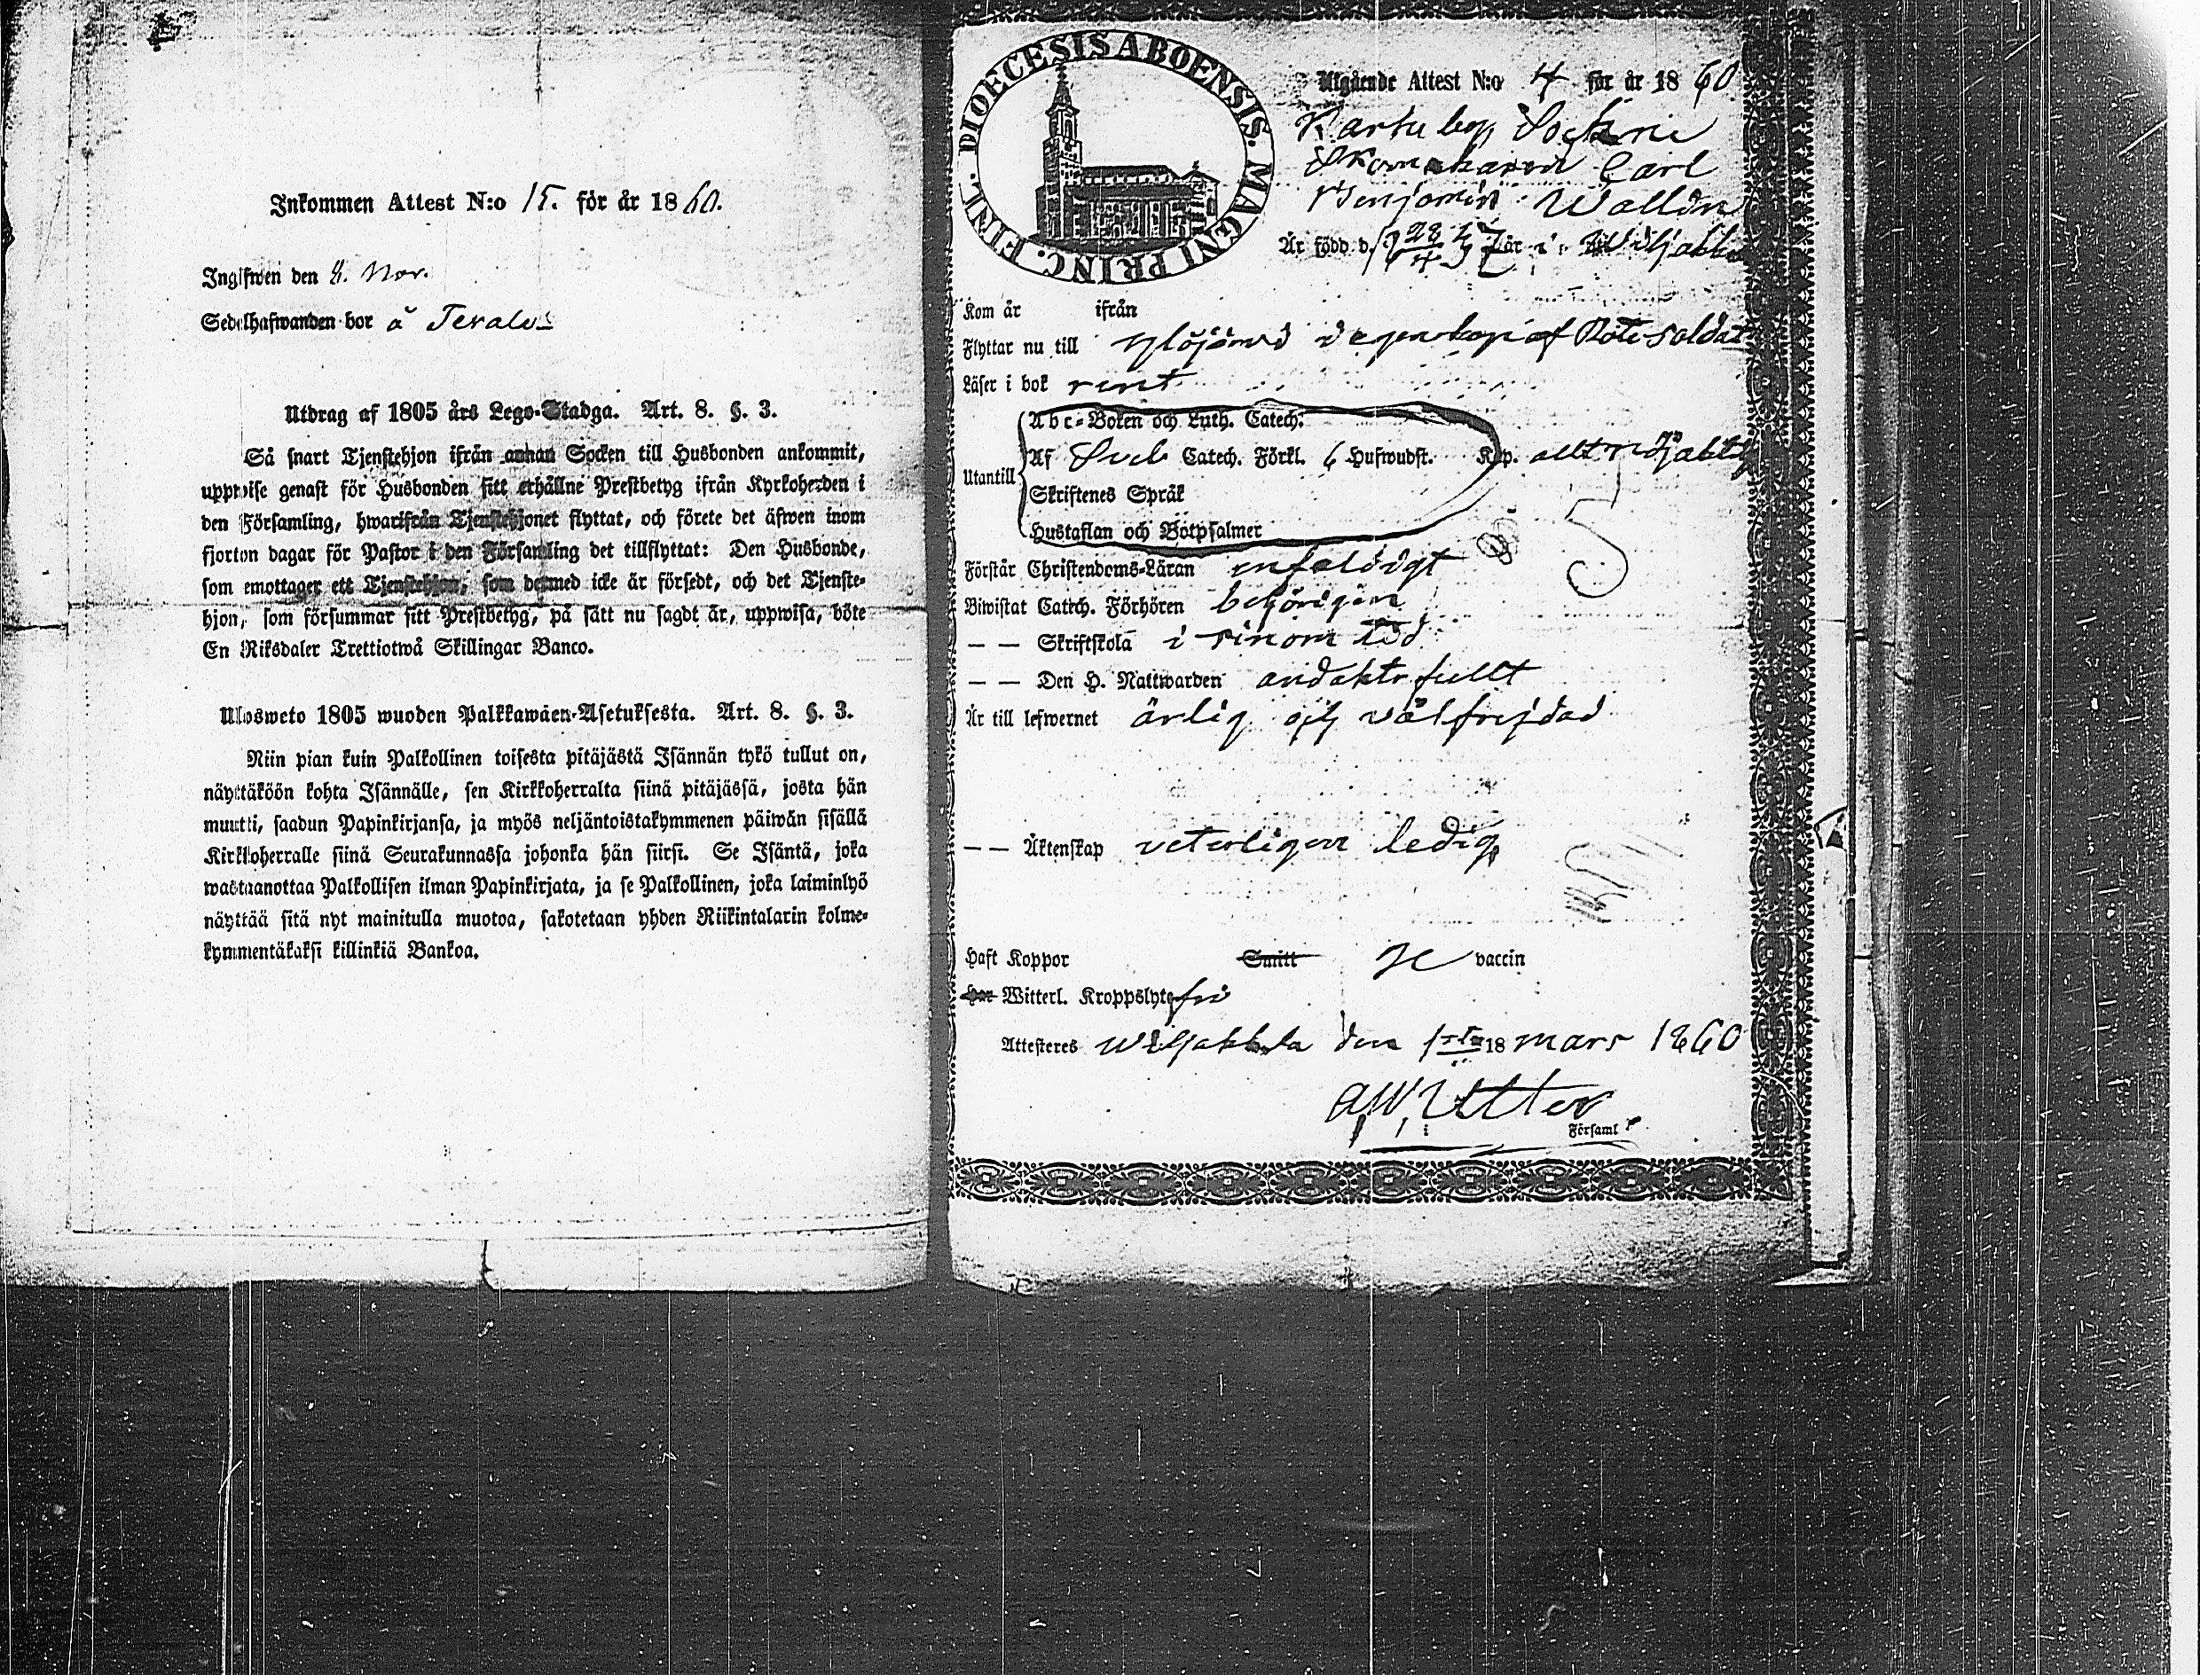 Inkommen Attest N:o 15. för år 1860.
Ingifwen den 8. Nov.
Sedelhafwanden bor å
Utdrag af 1805 års Lego-Stadga. Art. 8. §. 3.
Så snart Tjenstehjon ifrån annan Socken till Husbonden ankommit,
uppwise genast för Husbonden sitt erhållne Prestbetyg ifrån Kyrkoherden i
den Församling, hwarifrån Tjenstehjonet flyttat, och förete det äfwen inom
fjorton dagar för Pastor i den Församling det tillflyttat: Den Husbonde,
som emottager ett Tjenstehjon, som dermed icke är försedt, och det Tjenste-
hjon, som försummar sitt Prestbetyg, på sätt nu sagdt är, uppwisa, böte
En Riksdaler Trettiotwå Skillingar Banco.
Ulosweto 1805 wuoden Palkkawäen-Asetuksesta. Art. 8. §. 3.
Niin pian kuin Palkollinen toisesta pitäjästä Isännän tykö tullut on,
näyttäköön kohta Isännälle, sen Kirkkoherralta siinä pitäjässä, josta hän
muutti, saadun Papinkirjansa, ja myös neljäntoistakymmenen päiwän sisällä
Kirkkoherralle siinä Seurakunnassa johonka hän siirsi. Se Isäntä, joka
wastaanottaa Palkollisen ilman Papinkirjata, ja se Palkollinen, joka laiminlyö
näyttää sitä nyt mainitulla muotoa, sakotetaan yhden Riikintalarin kolme-
kymmentäkaksi killinkiä Bankoa.
DIOECESIS ABOENSIS. MAGNI PRINC. FINL.
Utgående Attest N:o 4 för år 1860
Carl
Benjamin Wallin
Är född d. 28/4 37 år i Wiljakkala
Kom år ifrån
Flyttar nu till Ylöjärvi egenskap af Rote soldat
Läser i bok rent
Abc-Boken och Luth. Catech.
Utantill Af Sveb Catech. Förkl. 6 Hufwudst. Kap. allt nöjaktigt
Skriftenes Språk
Hustaflan och Botpsalmer
Förstår Christendoms-Läran enfaldigt
Biwistat Catech. Förhören behörigen
— — Skriftskola i sinom tid
— — Den H. Nattwarden andaktsfullt
Är till lefwernet ärlig och välfrejdad
— — Äktenskap veterligen ledig
Haft Koppor Snitt vaccin
Har Witterl. Kroppslyte fri
Attesteres Wiljakkala den 1sta 18 mars 1860
Församl